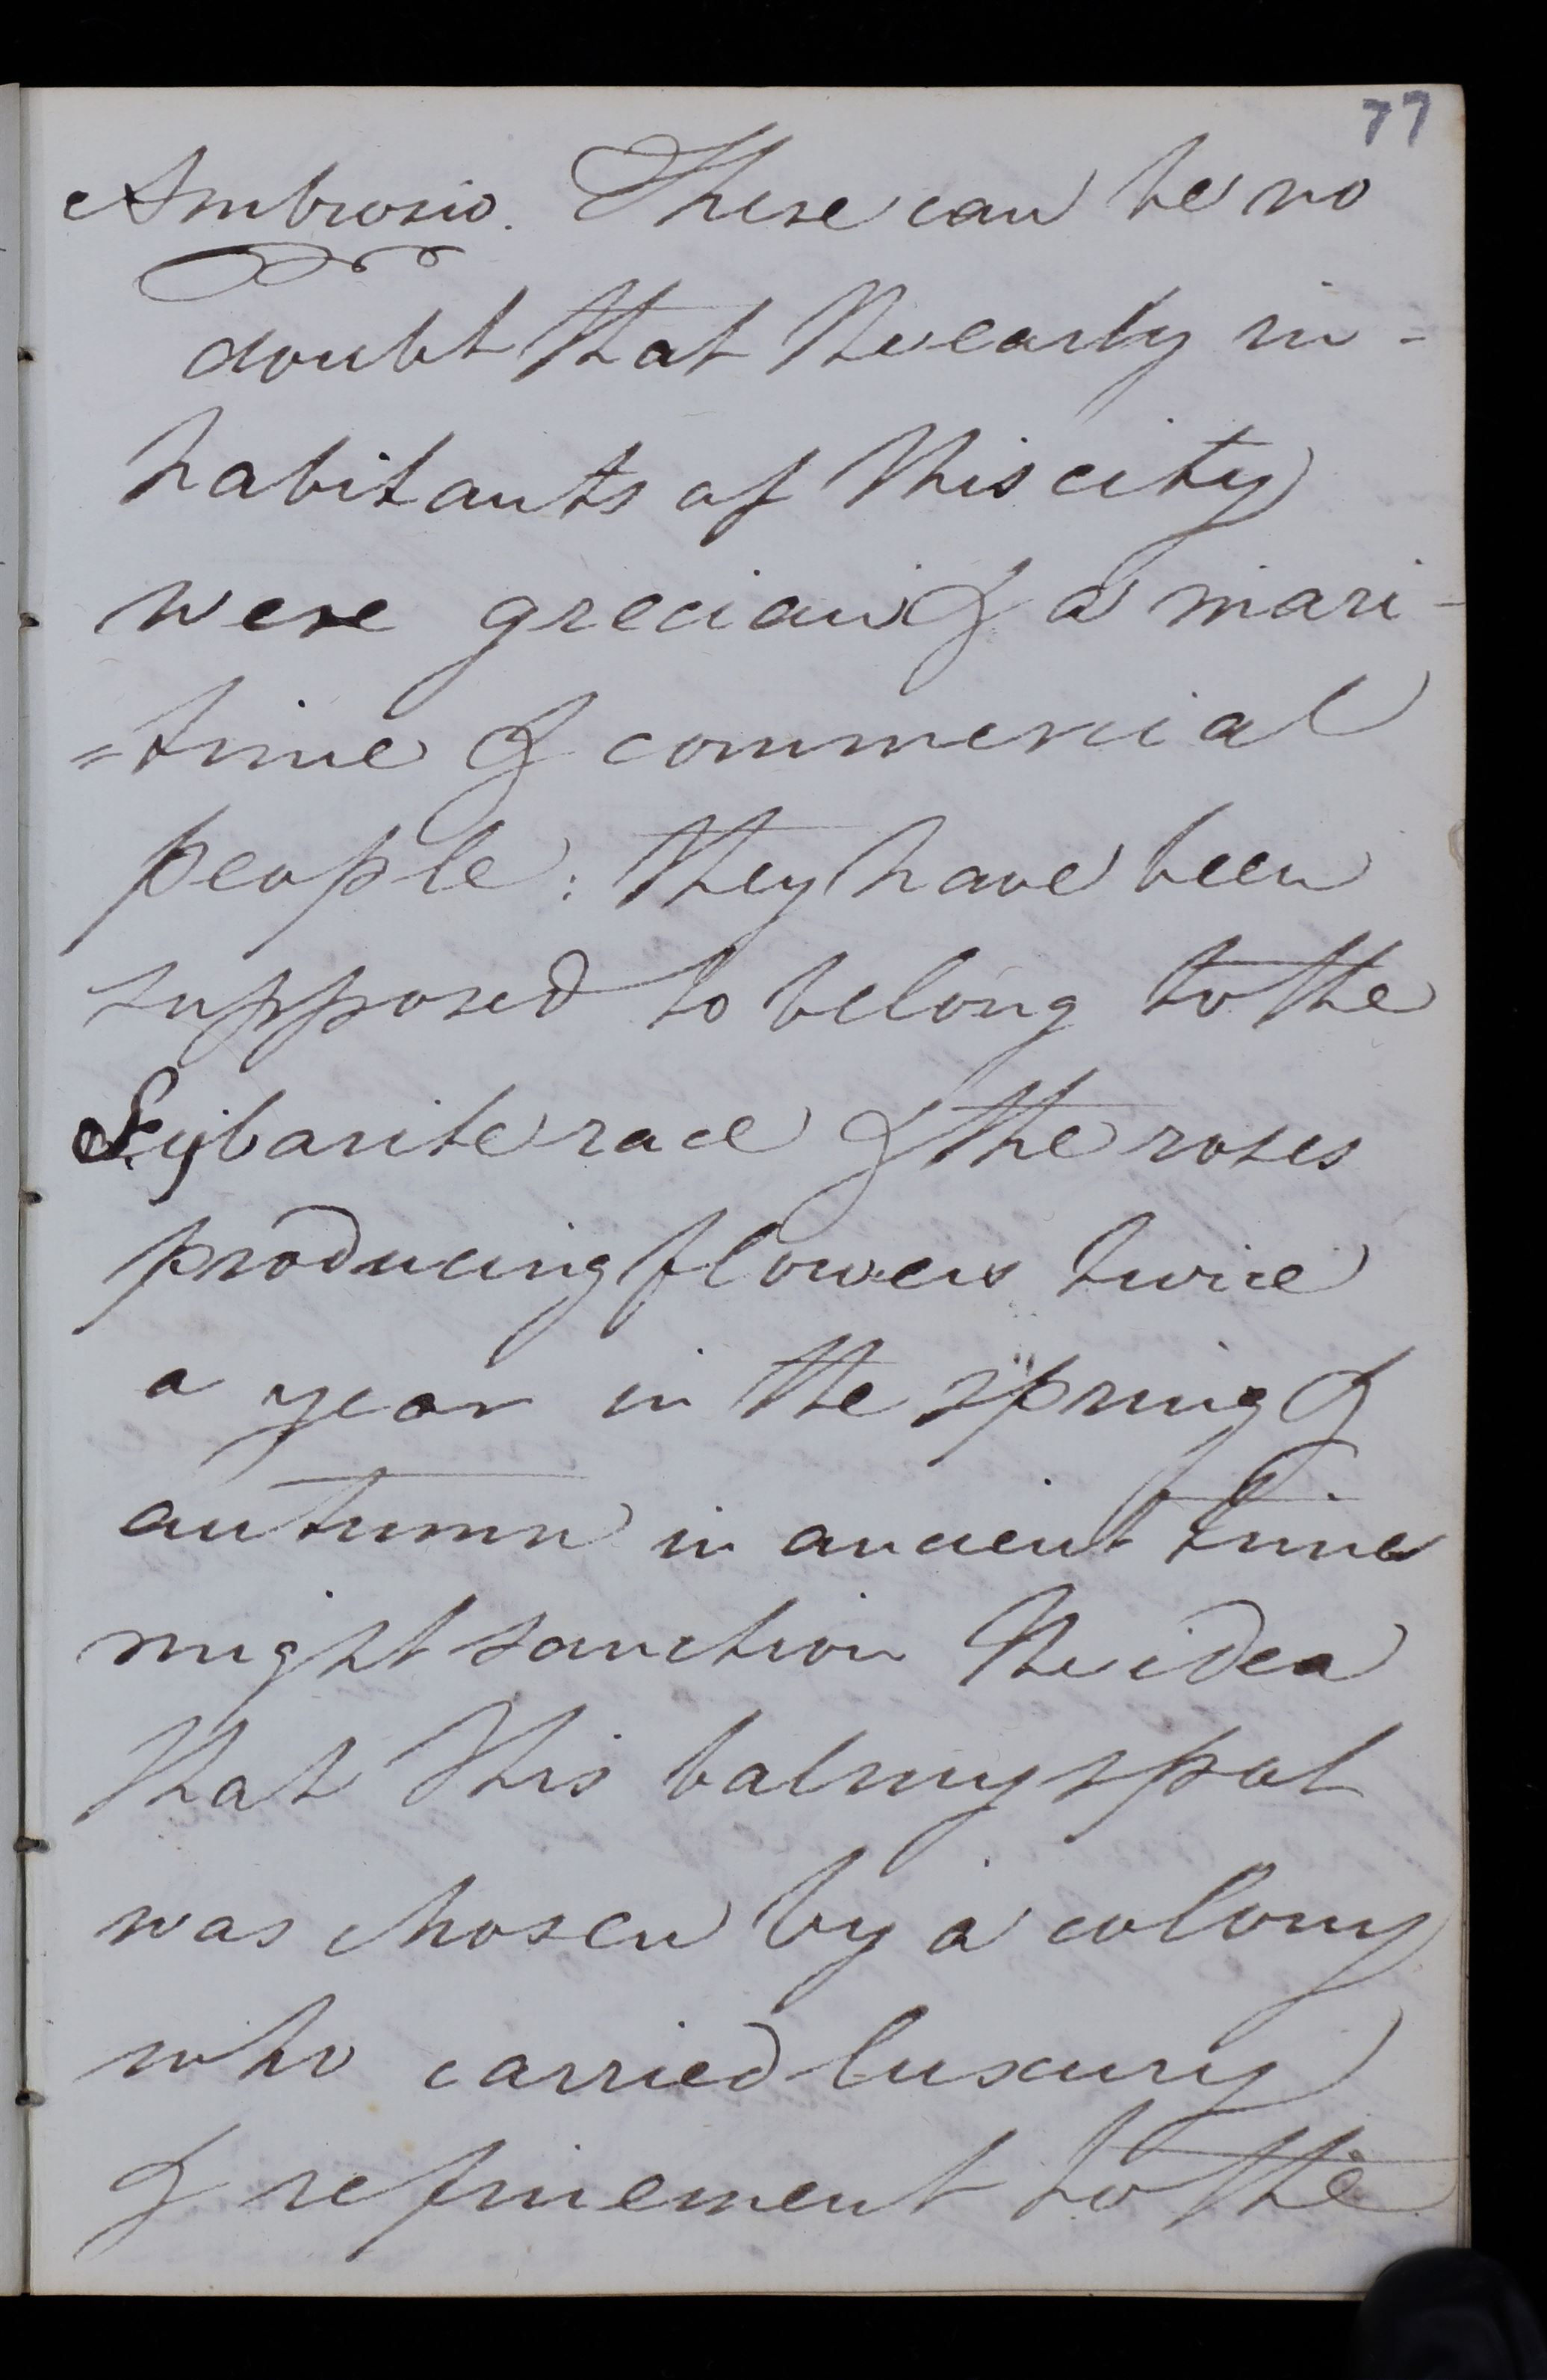 77
Ambrosio. There can be no
doubt that the early in-
habitants of this city
were grecian & a mari-
=time & commercial
people: they have been
supposed to belong to the
Sybarite race & the roses
producing flowers twice
a year in the spring &
autumn in ancient time
might sanction the idea
that this balmy spot
was chosen by a colony
who carried luxury
& refinement to the